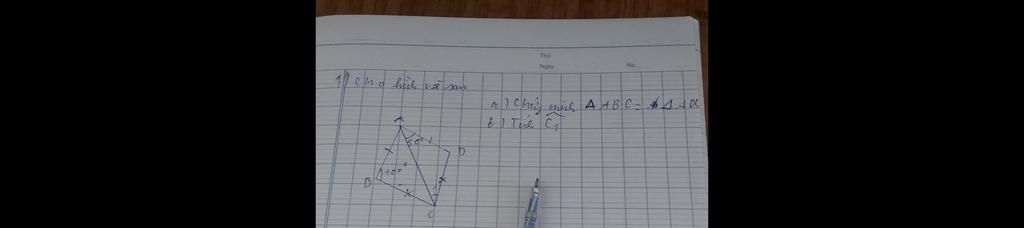 Thứ
Ngày No.
1) Cho hình vẽ sau
a) Chứng minh Δ ABC = Δ ADC
b) Tính C1
A
D
100°
B
C